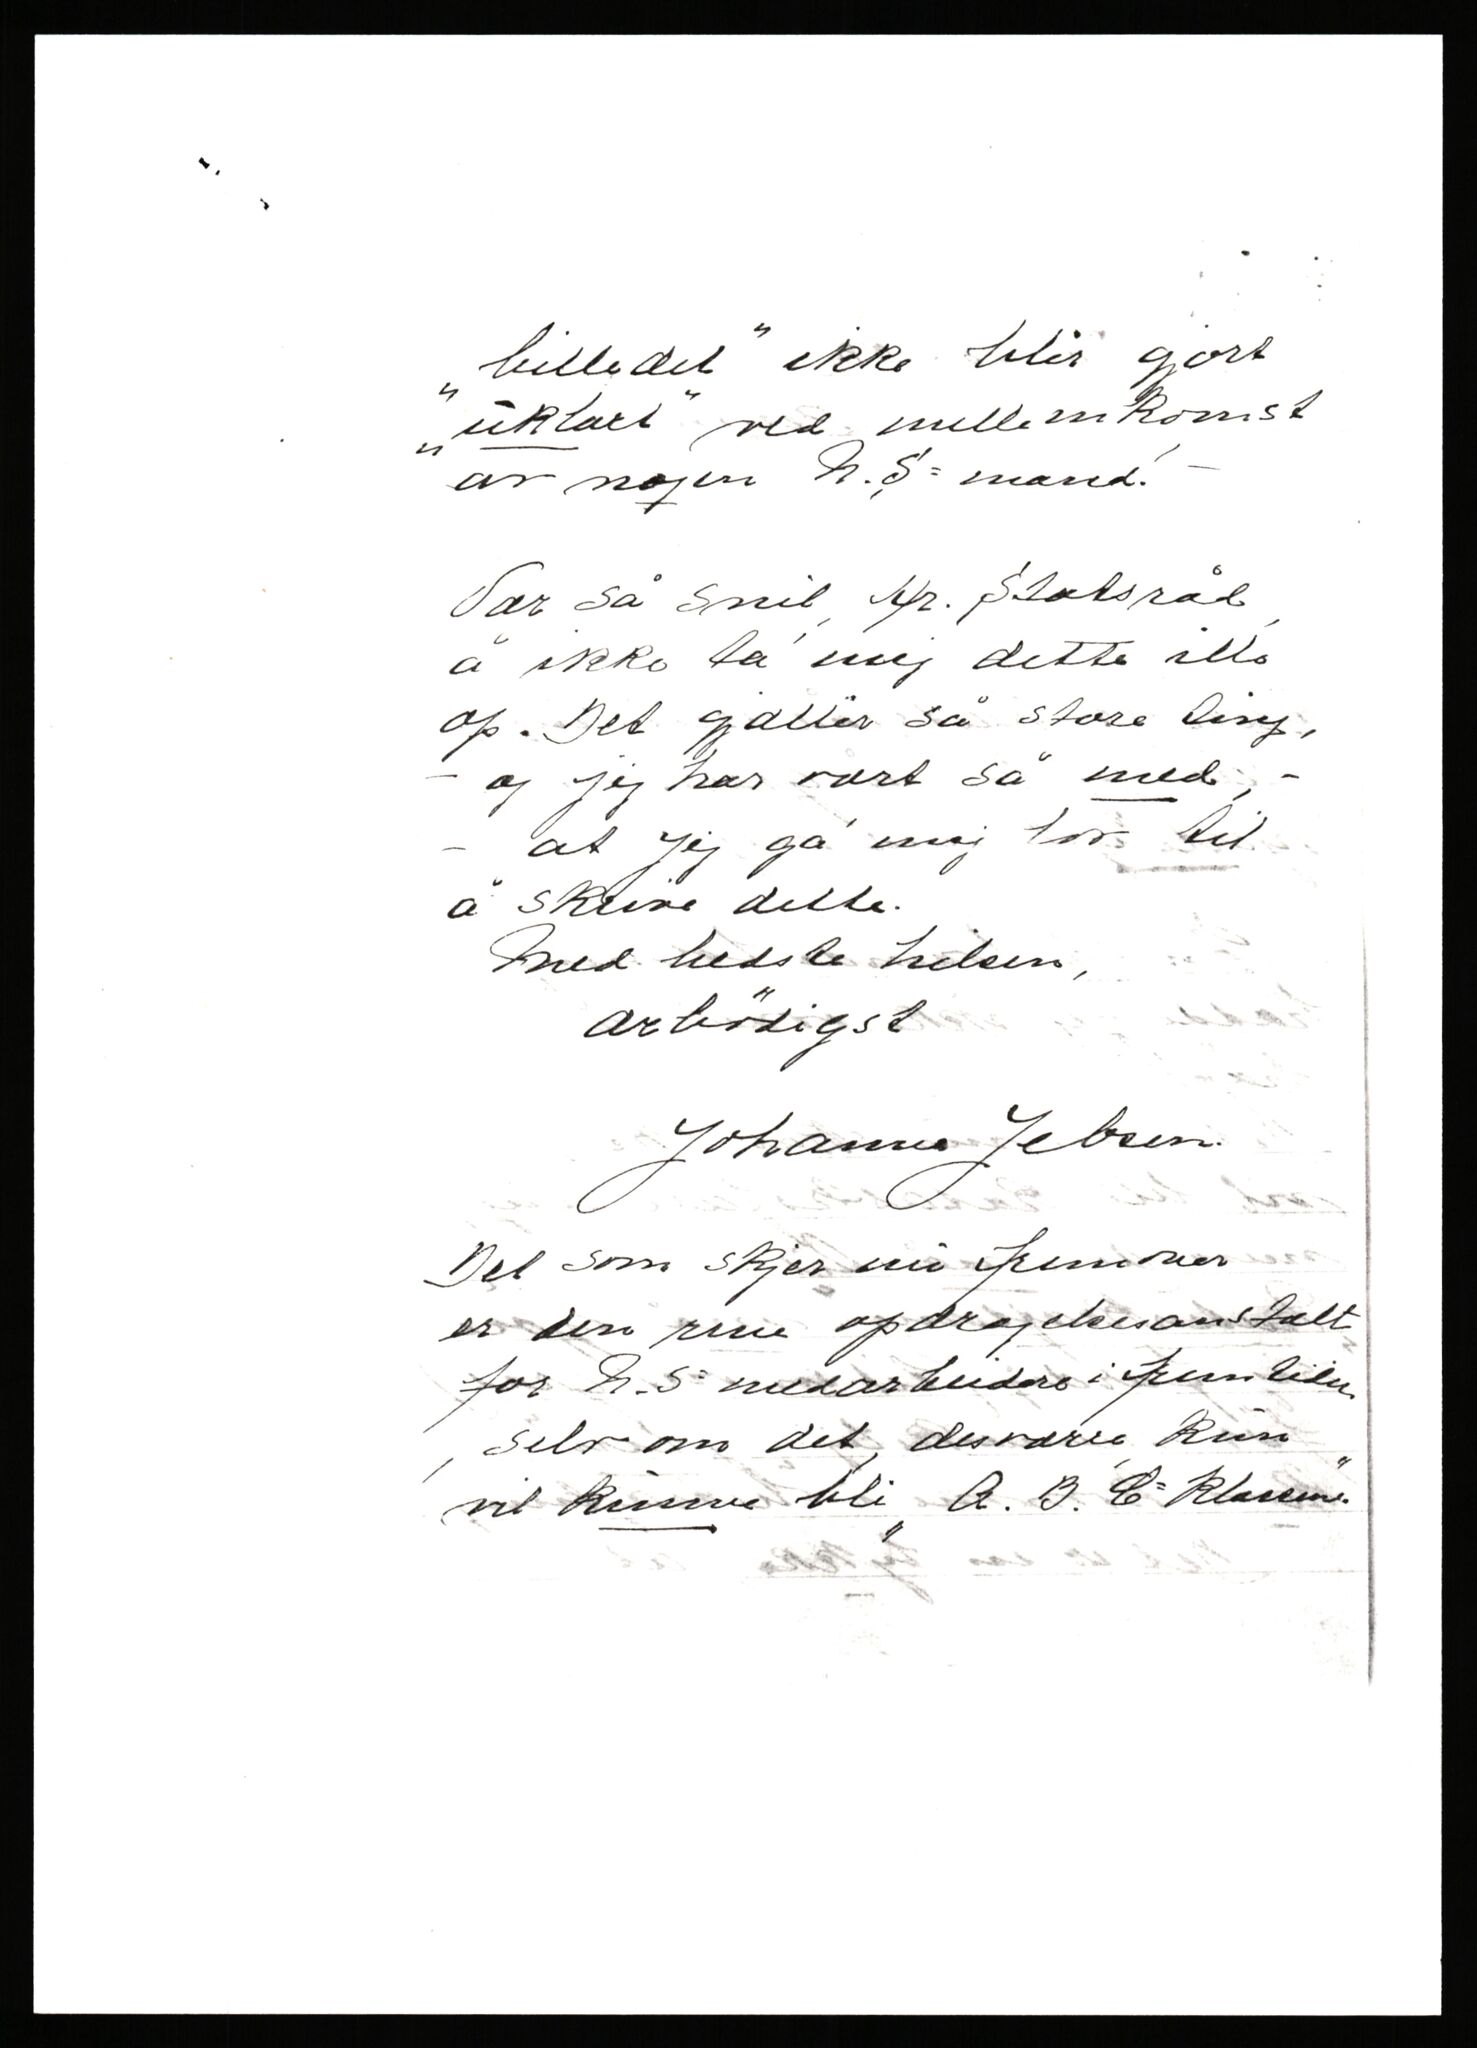 "billedet" ikke blir gjort
"uklart" ved mellemkomst
"av nogen N.S=mand. –
Vær så snil, Hr. Statsråd,
å ikke ta mig dette ille
op. Det gjæller så store ting,
– og jeg har vært så med, –
– at jeg gå mig lov til
å skrive dette.
Med bedste hilsen,
ærbödigst
Johanne Jebsen.
Det som skjer nu fremover
er den rene opdragelsesanstalt
for N.S=medarbeidere i fremtiden
, selv om det, desværre, kun
vil kunne bli „A.B.C=klassene".